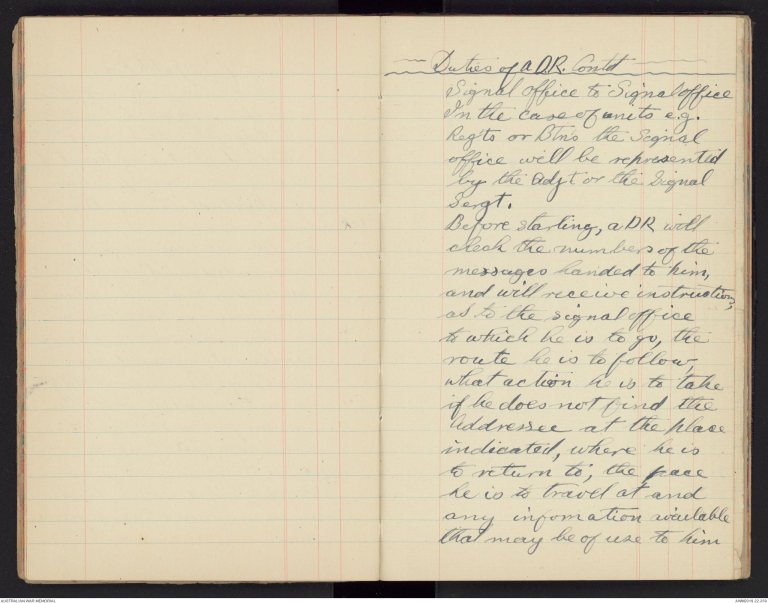 Duties of a D.R. Contd
Signal office to Signal office
In the case of units e.g.
Regts or Btns the Signal
office will be represented
by the Adjt or the Signal
Sergt.
Before starting, a DR will
check the numbers of the
messages handed to him,
and will receive instructions,
as to the signal office
to which he is to go, the
route he is to follow,
what action he is to take
if he does not find the
Addressee at the place
indicated, where he is
to return to, the pace
he is to travel at and
any infomation available
that may be of use to him
AUSTRALIAN WAR MEMORIAL